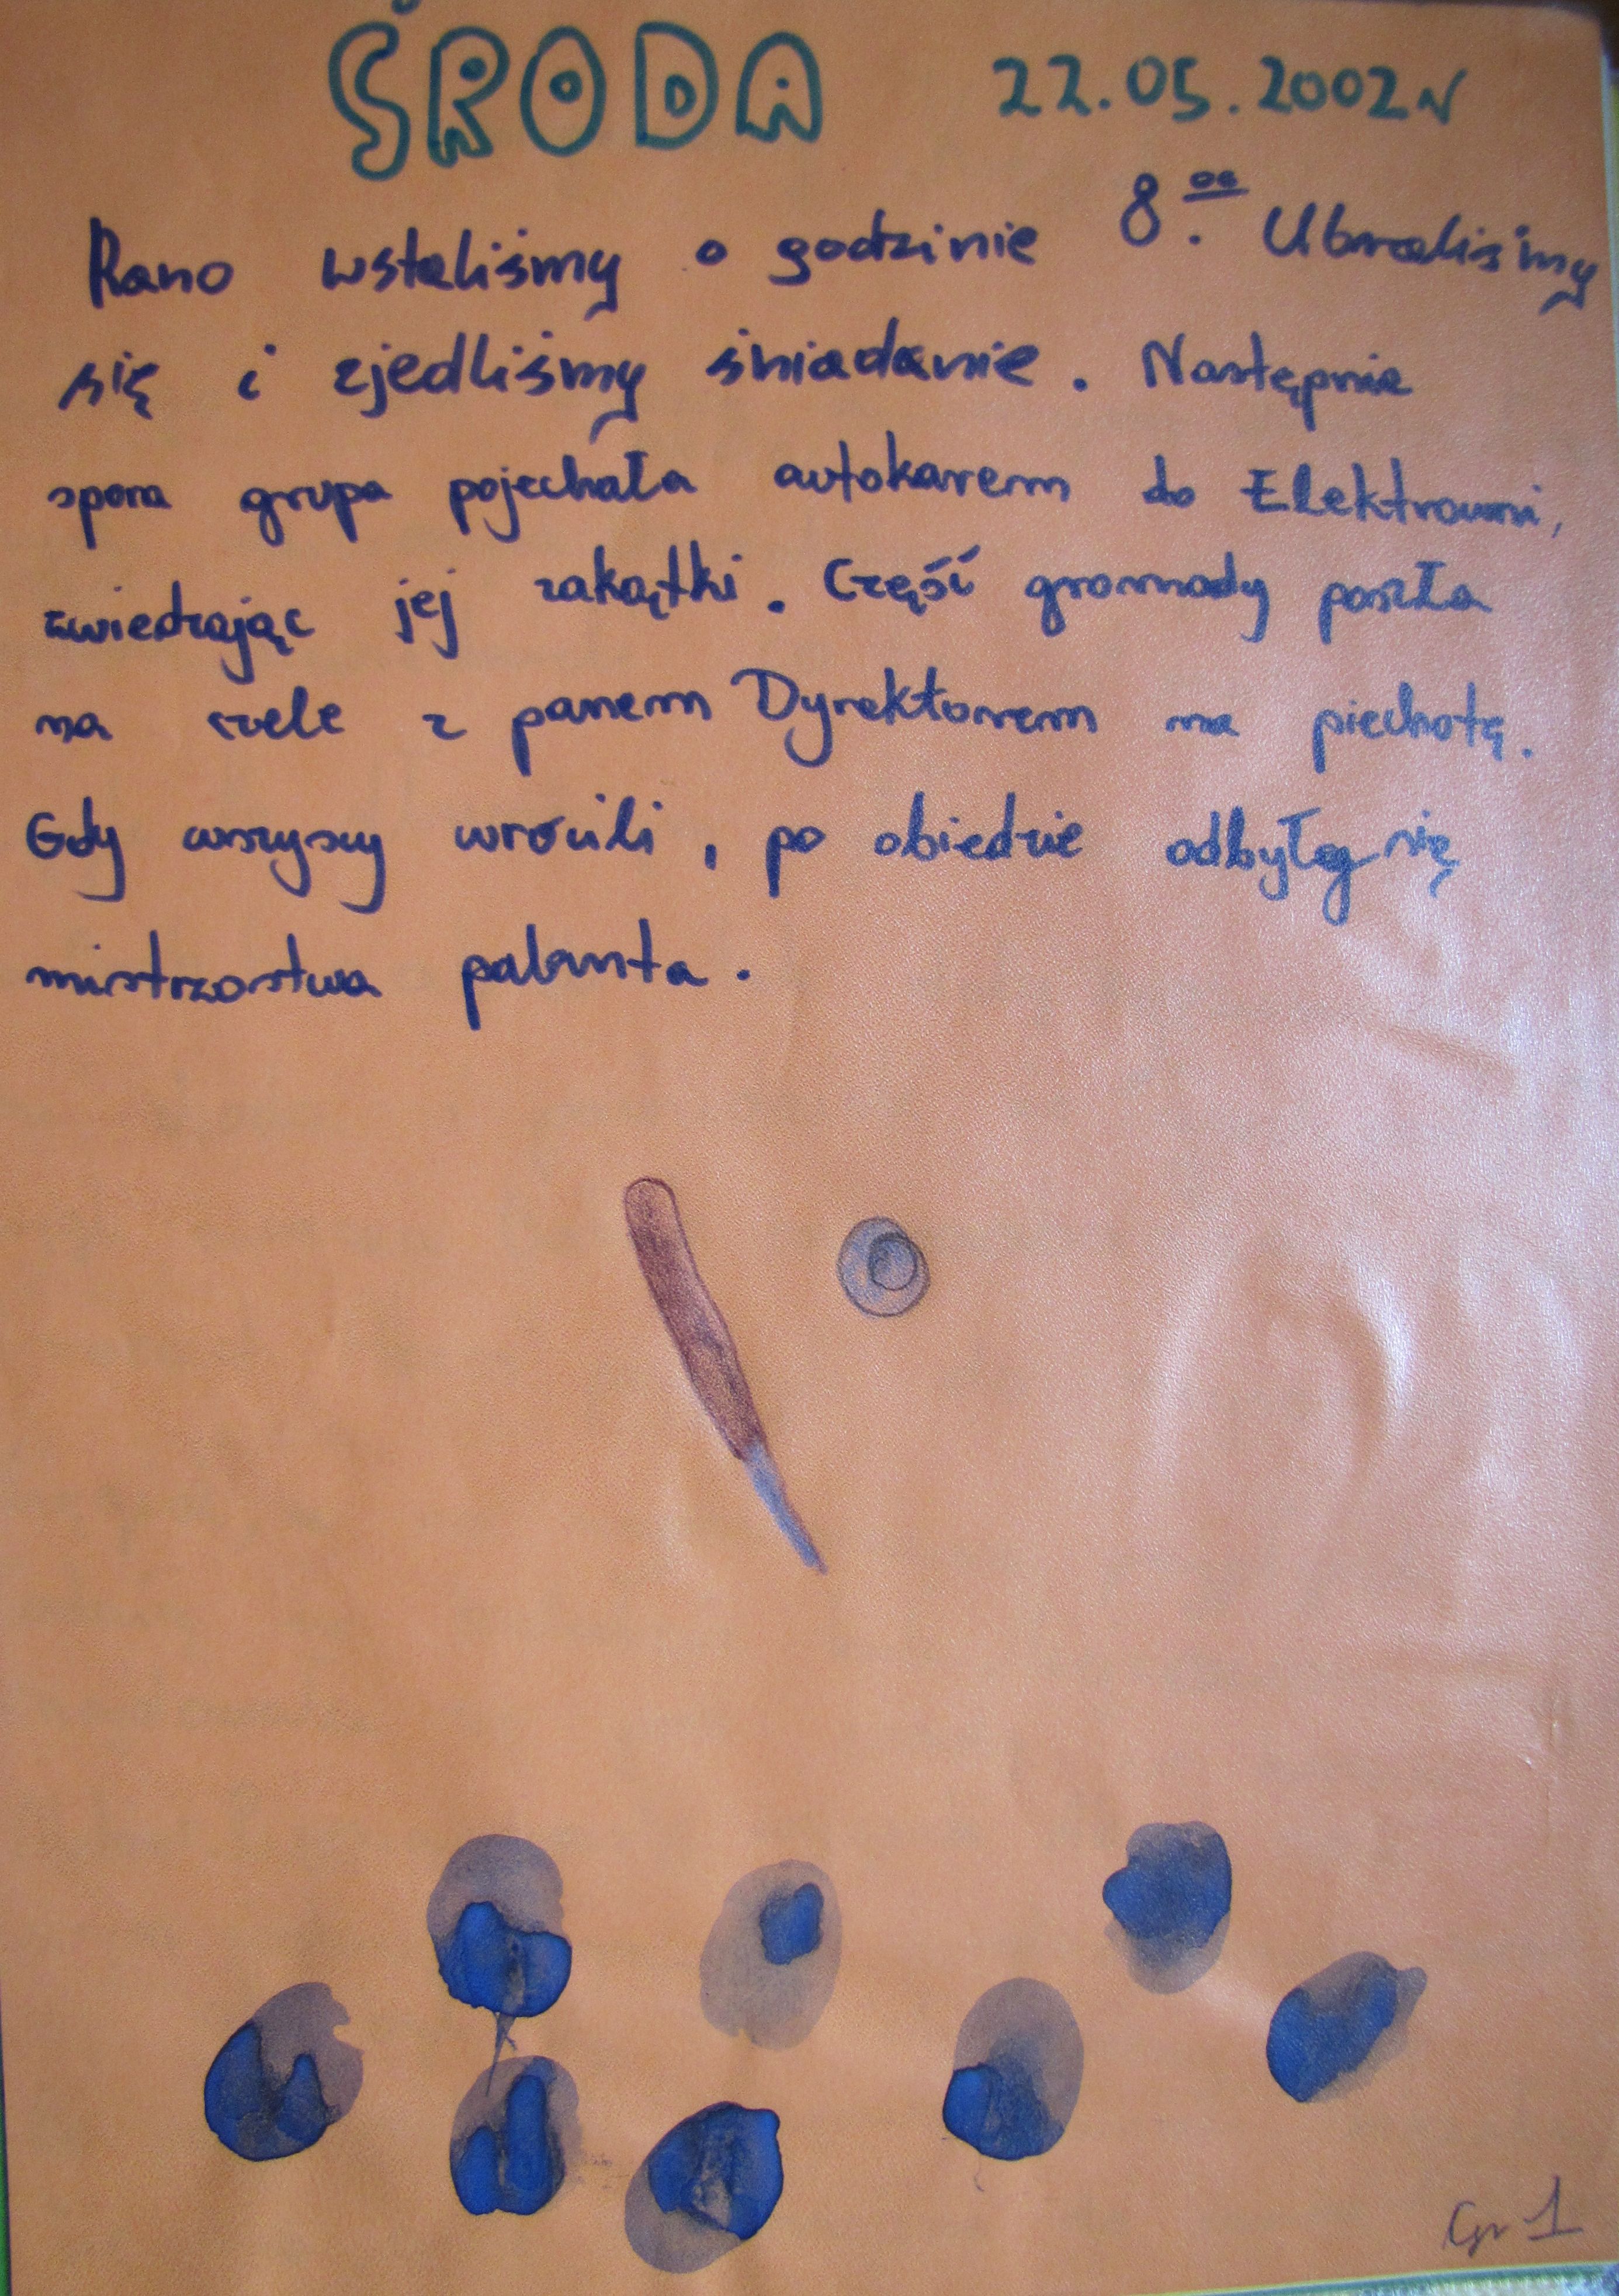 ŚRODA 22.05.2002r
Rano wstaliśmy o godzinie 8.00 Ubraliśmy
się i zjedliśmy śniadanie. Następnie
spora grupa pojechała autokarem do Elektrowni,
zwiedzając jej zakątki. Część gromady poszła
na czele z panem Dyrektorem na piechotę.
Gdy wszyscy wrócili, po obiedzie odbyły się
mistrzostwa palanta.
Gr 1